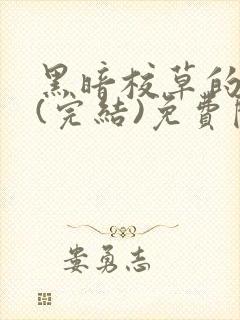 黑暗校草的
(完結)免費
娄勇志